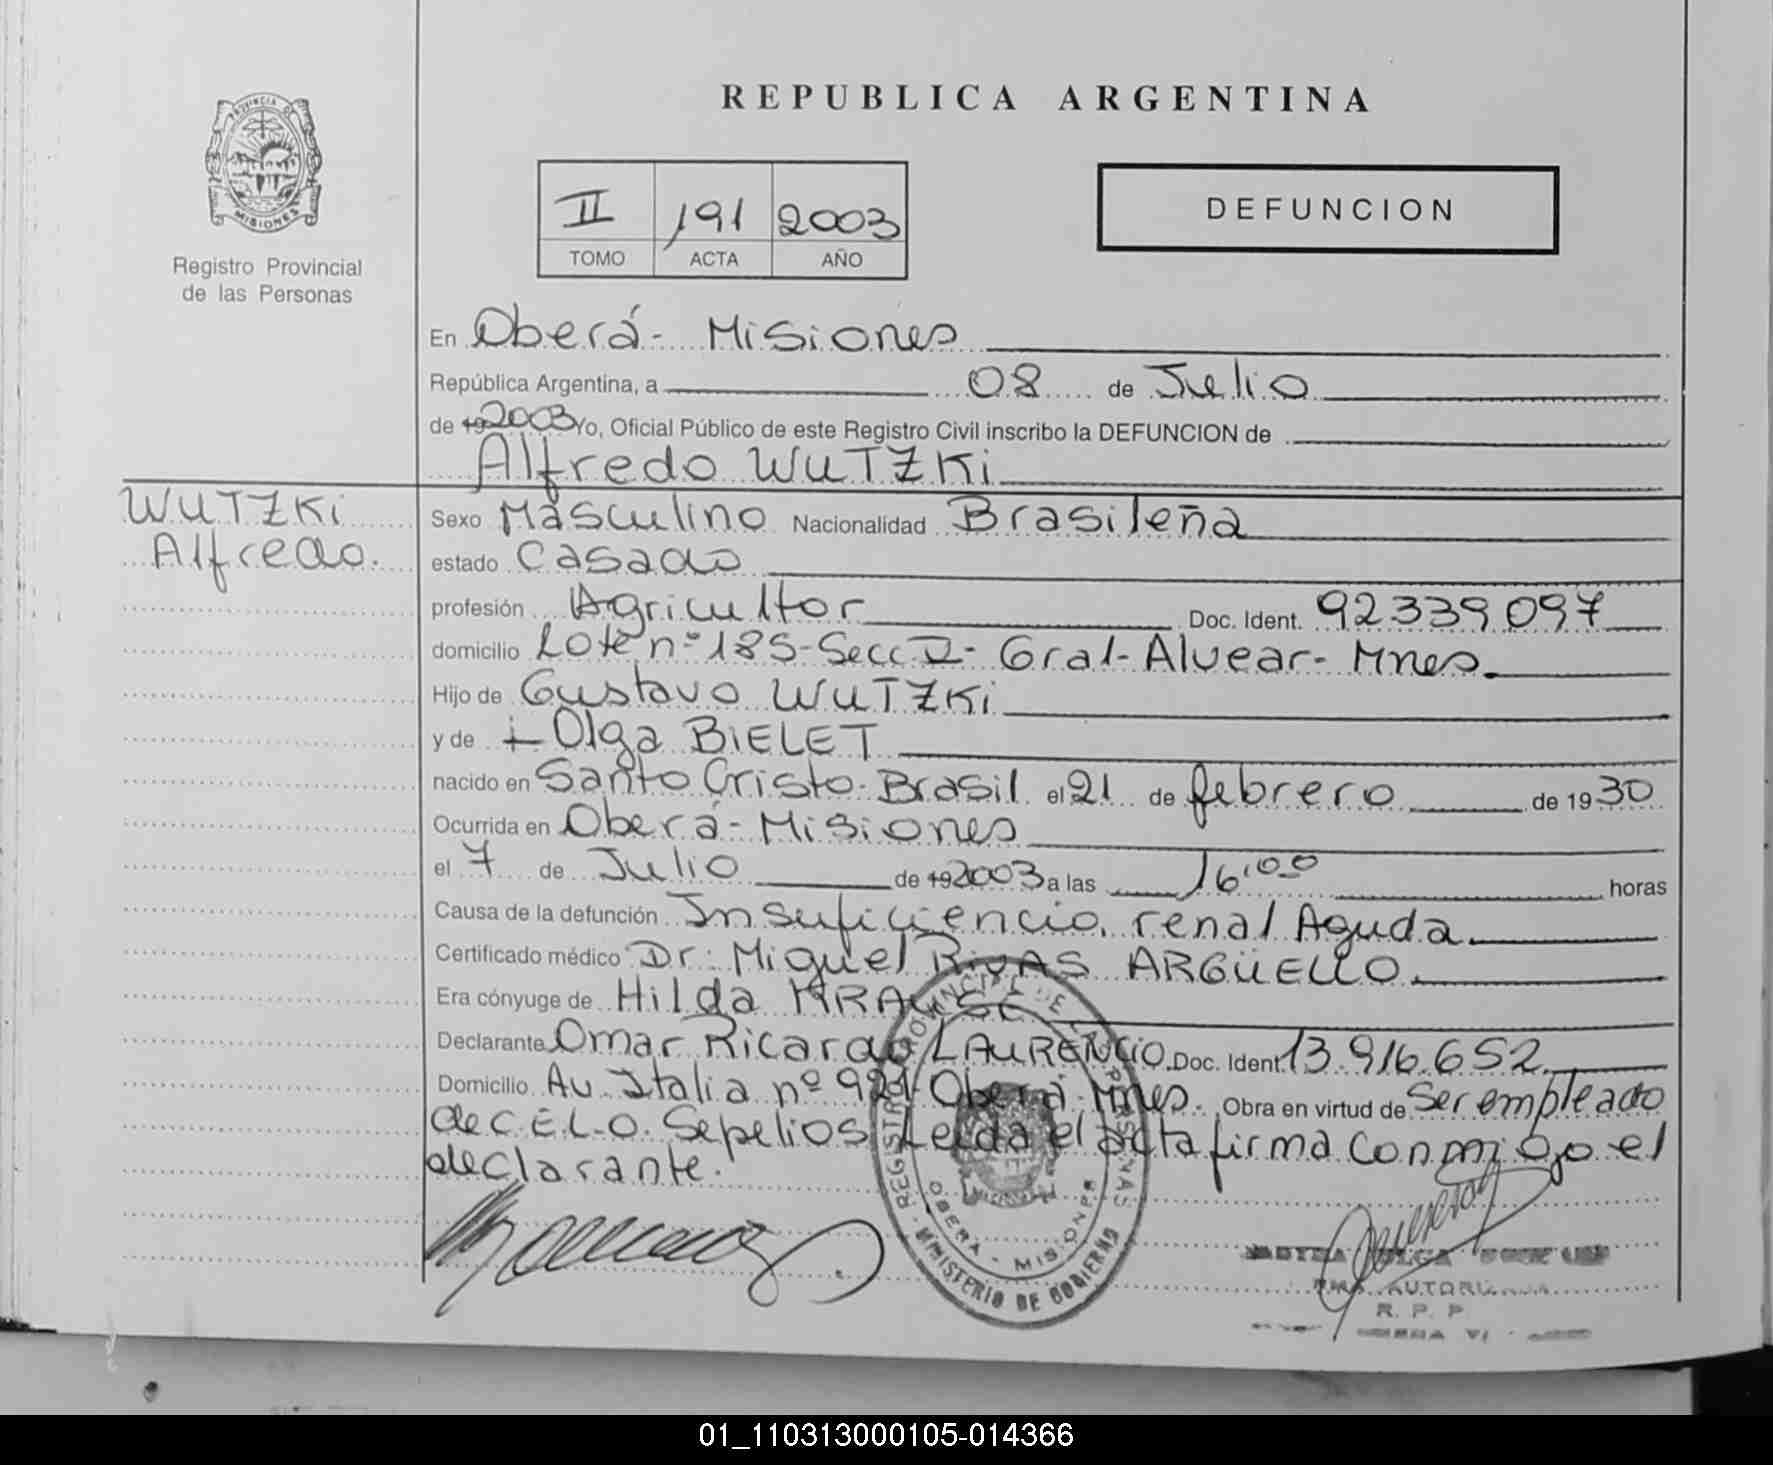 PROVINCIA DE
MISIONES
Registro Provincial
de las Personas
REPUBLICA ARGENTINA
II 191 2003
TOMO ACTA AÑO
DEFUNCION
En Oberá - Misiones
República Argentina, a 08 de Julio
de 19 2003 Yo, Oficial Público de este Registro Civil inscribo la DEFUNCION de
Alfredo WUTZKi
WUTZKi
Alfredo.
Sexo Masculino Nacionalidad Brasileña
estado Casado
profesión Agricultor Doc. Ident. 92.339.097
domicilio Lote nº 185-Secc I- Gral-Alvear- Mnes.
Hijo de Gustavo WUTZKi
y de + Olga BiELET
nacido en Santo Cristo-Brasil el 21 de febrero de 1930
Ocurrida en Oberá - Misiones
el 7 de Julio de 19 2003 a las 16,00 horas
Causa de la defunción Insuficiencia renal Aguda.
Certificado médico Dr: Miguel RiVAS ARGÜELLO.
Era cónyuge de Hilda KRAUSE
Declarante Omar Ricardo LAURENCiO. Doc. Ident. 13.916.652
Domicilio Av. Italia nº 921-Oberá-Mnes. Obra en virtud de Ser empleado
de C.E.L.O. Sepelios. Leída el acta firma conmigo el
declarante.
REGISTRO PROVINCIAL DE LAS PERSONAS
OBERA - MISIONES
MINISTERIO DE GOBIERNO
R. P. P.
01_110313000105-014366